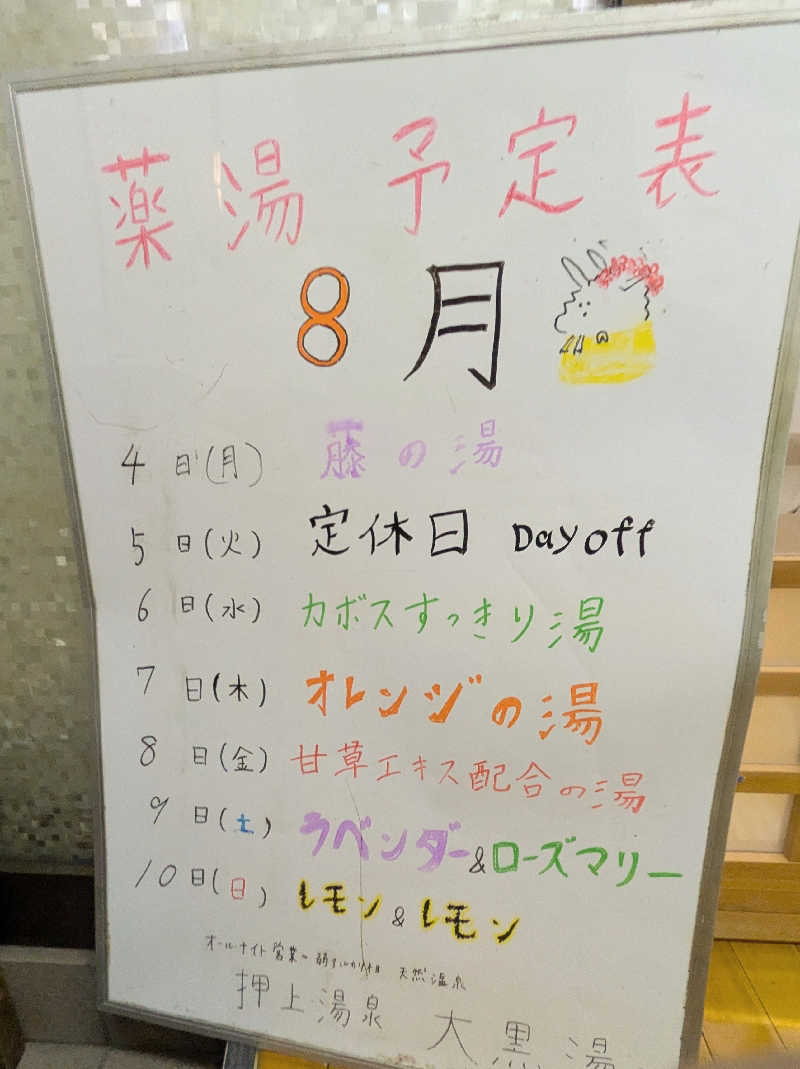 薬湯予定表
8月
4日(月) 藤の湯
5日(火) 定休日 Day off
6日(水) カボスすっきり湯
7日(木) オレンジの湯
8日(金) 甘草エキス配合の湯
9日(土) ラベンダー&ローズマリー
10日(日) レモン&レモン
オールナイト営業 天然温泉
押上湯泉 大黒湯